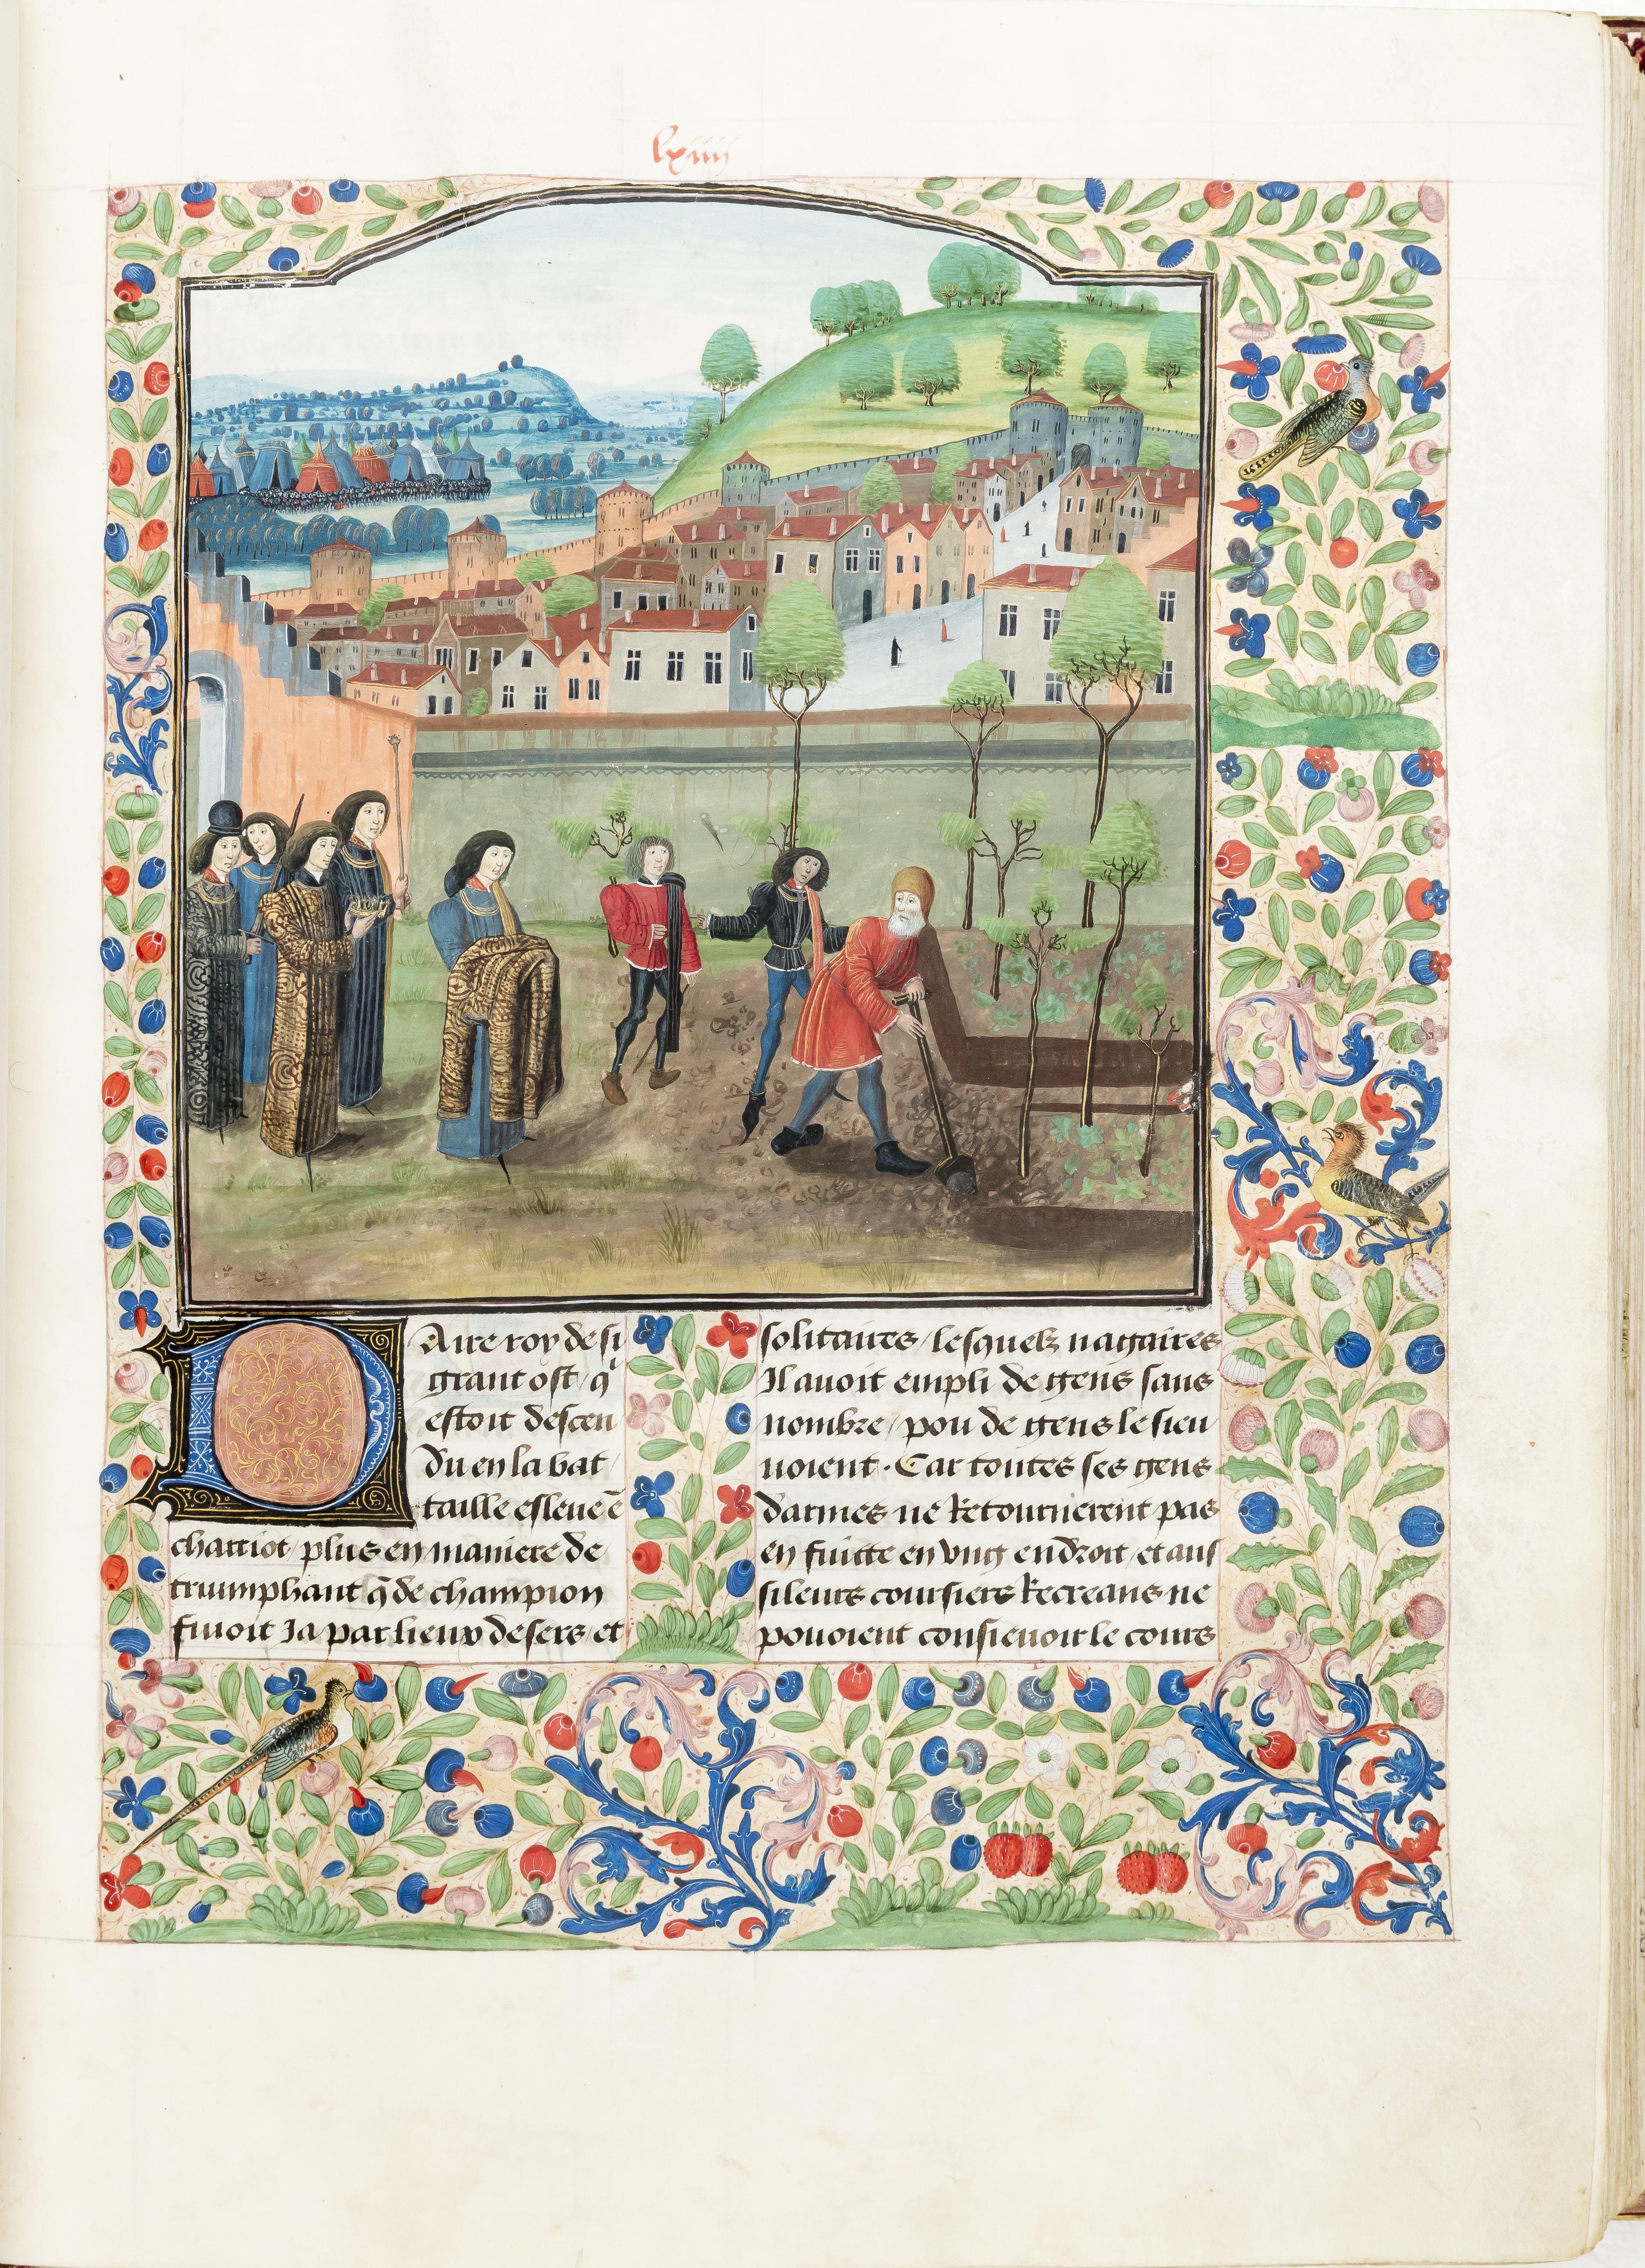 lxiiii
DAire roy de si
grant ost / q̃
estoit descen
du en la bat
taille esleue ẽ
charriot / plus en maniere de
triumphant q̃ de champion
fuioit Ja par lieux desers et
solitaires / lesquelz nagaires
Il auoit empli de gens sans
nombre / pou de gens le sieu
uoient . Car toutes ses gens
darmes ne Retournerent pas
en fuitte en vng endroit / et aus
si leurs coursiers Recreans ne
pouoient consieuoir le cours